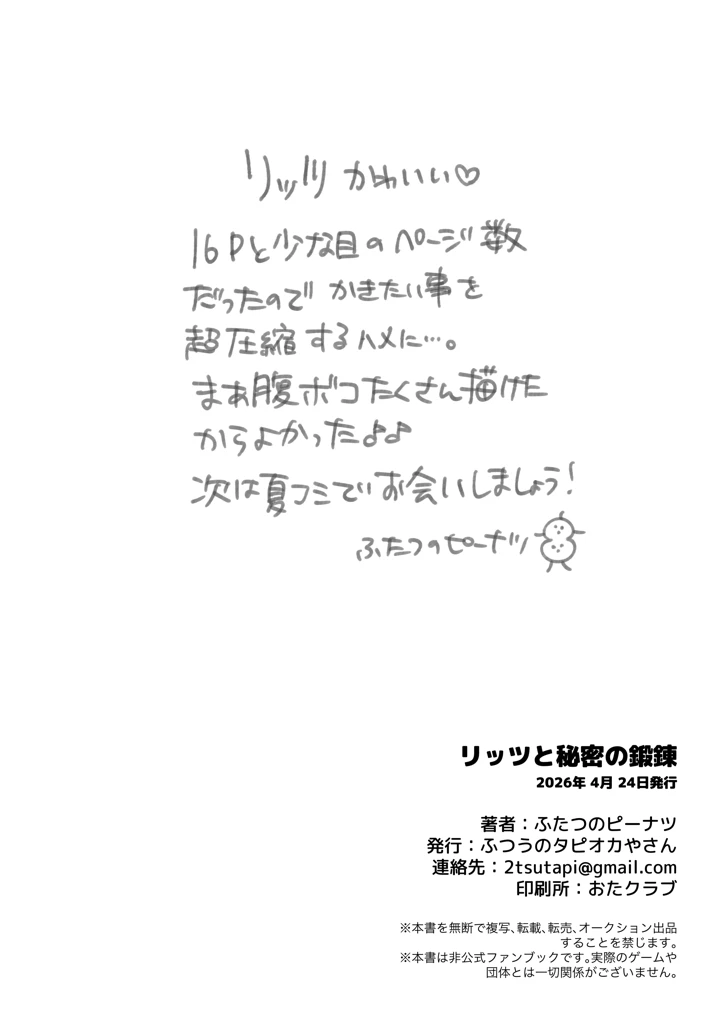 リッツ かわいい♡
16Pと少な目のページ数
だったので かきたい事を
超圧縮するハメに…。
まあ腹ボコたくさん描けた
からよかった♪♪
次は夏コミでお会いしましょう!
ふたつのピーナツ
リッツと秘密の鍛錬
2026年 4月 24日発行
著者：ふたつのピーナツ
発行：ふつうのタピオカやさん
連絡先：2tsutapi@gmail.com
印刷所：おたクラブ
※本書を無断で複写、転載、転売、オークション出品
することを禁じます。
※本書は非公式ファンブックです。実際のゲームや
団体とは一切関係がございません。